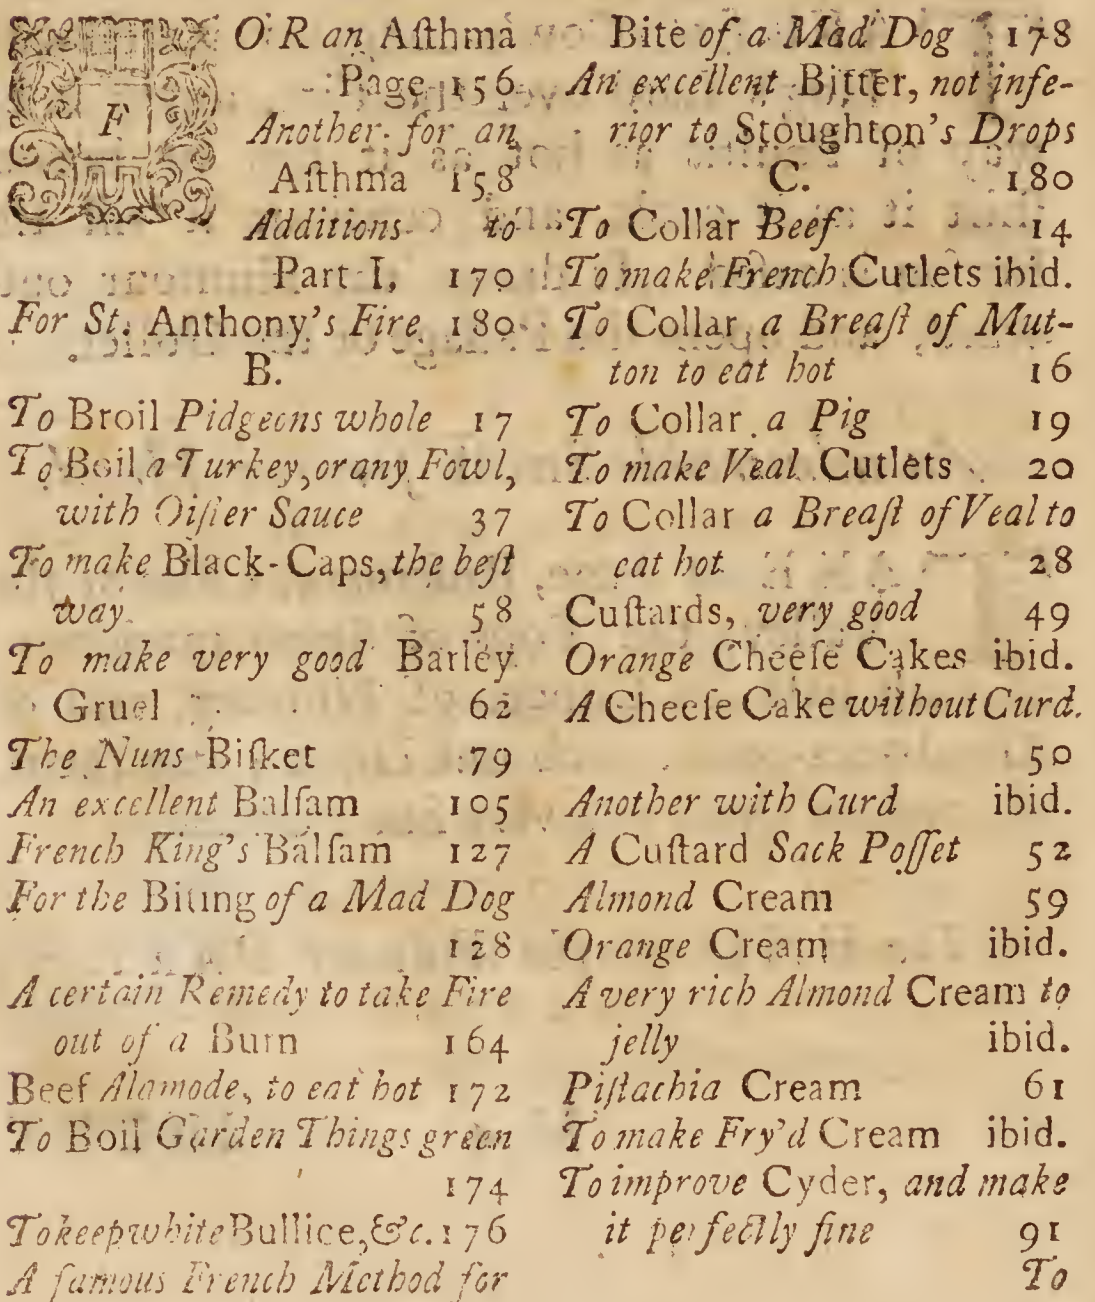 FOR an Aſthma
Page 156
Another for an
Aſthma 158
Additions to
Part I, 170
For St. Anthony's Fire 180
B.
To Broil Pidgeons whole 17
To Boil a Turkey, or any Fowl,
with Oiſter Sauce 37
To make Black-Caps, the beſt
way. 58
To make very good Barley
Gruel 62
The Nuns Biſket 79
An excellent Balſam 105
French King's Balſam 127
For the Biting of a Mad Dog
128
A certain Remedy to take Fire
out of a Burn 164
Beef Alamode, to eat hot 172
To Boil Garden Things green
174
To keep white Bullice, &c. 176
A famous French Method for
Bite of a Mad Dog 178
An excellent Bitter, not infe-
rior to Stoughton's Drops
C. 180
To Collar Beef 14
To make French Cutlets ibid.
To Collar a Breaſt of Mut-
ton to eat hot 16
To Collar a Pig 19
To make Veal Cutlets 20
To Collar a Breaſt of Veal to
eat hot 28
Cuſtards, very good 49
Orange Cheeſe Cakes ibid.
A Cheeſe Cake without Curd.
50
Another with Curd ibid.
A Cuſtard Sack Poſſet 52
Almond Cream 59
Orange Cream ibid.
A very rich Almond Cream to
jelly ibid.
Piſtachia Cream 61
To make Fry'd Cream ibid.
To improve Cyder, and make
it perfectly fine 91
To